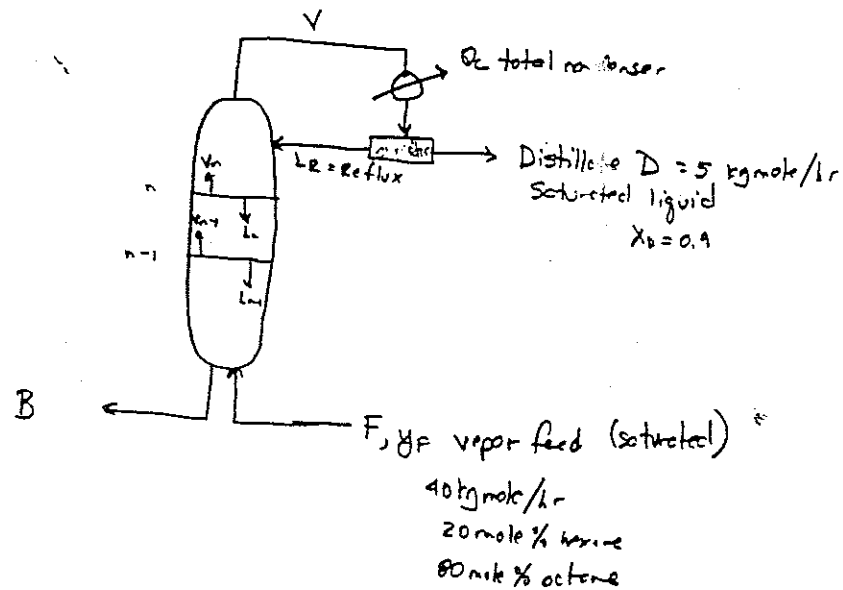 V
Qc total
LR = Reflux
Distillate D = 5 kgmole/hr
Saturated liquid
XD = 0.9
n
Vn
Ln
n-1
Vn-1
Ln-1
B
F, yF vapor feed (saturated)
40 kgmole/hr
20 mole % hexane
80 mole % octane